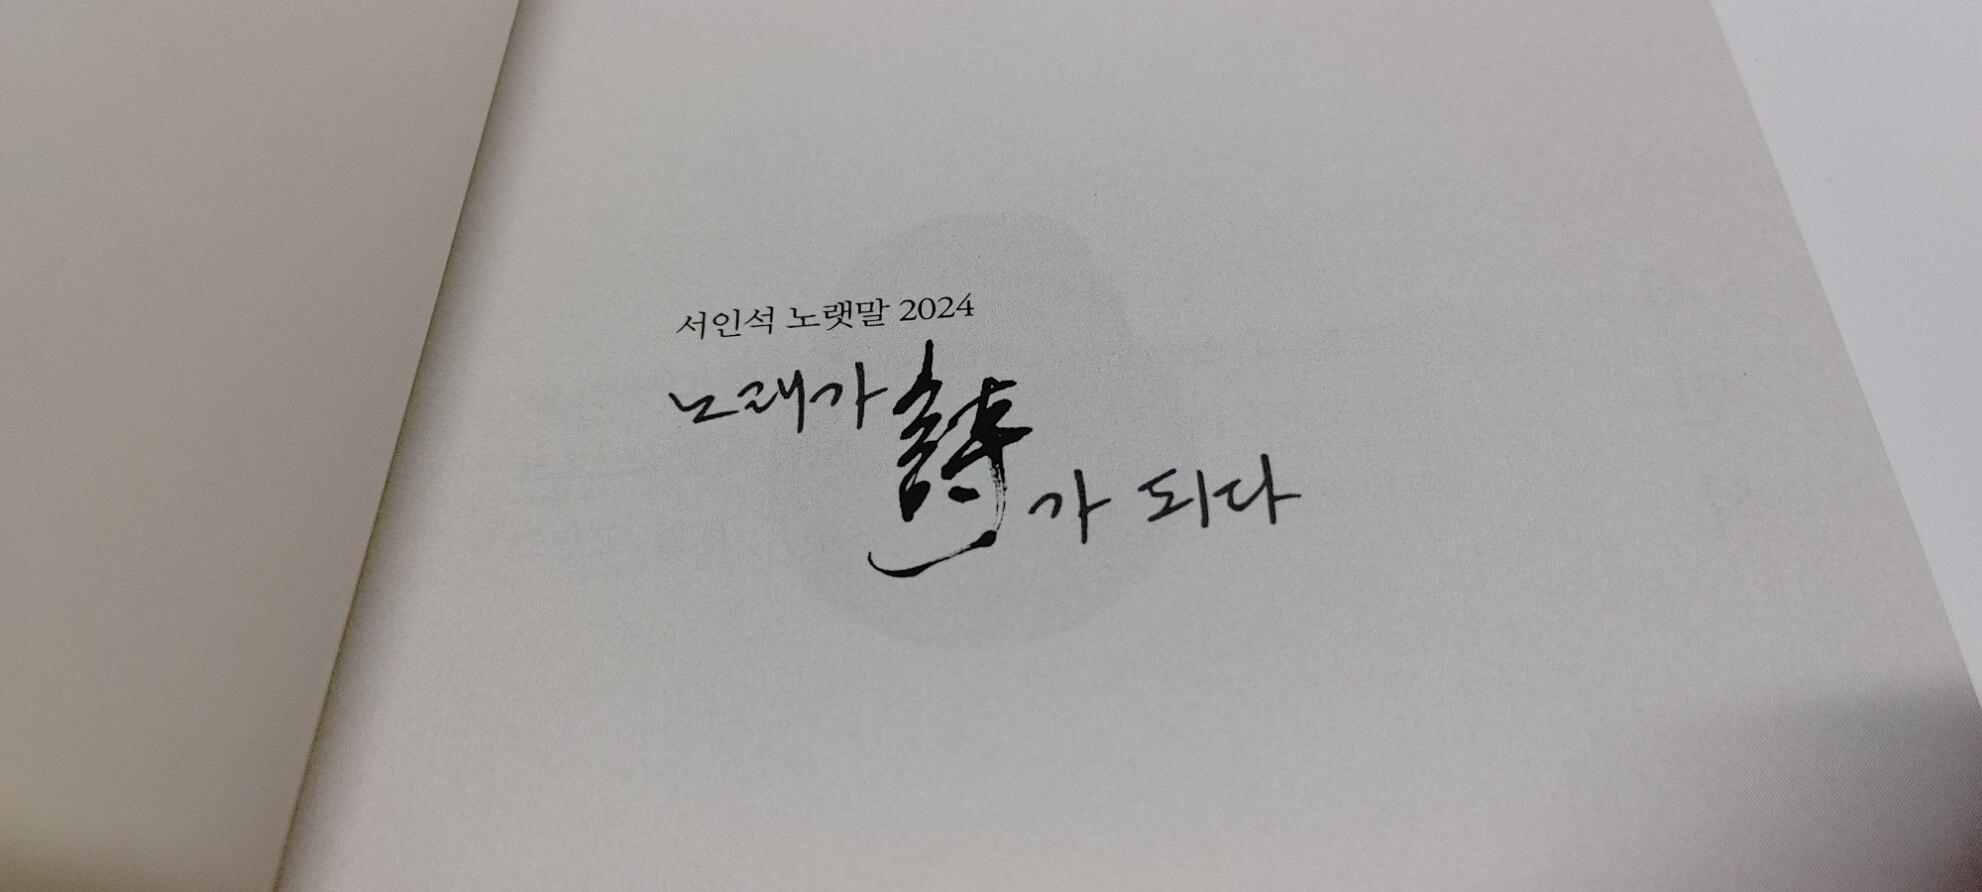 서인석 노랫말 2024
노래가 詩가 되다